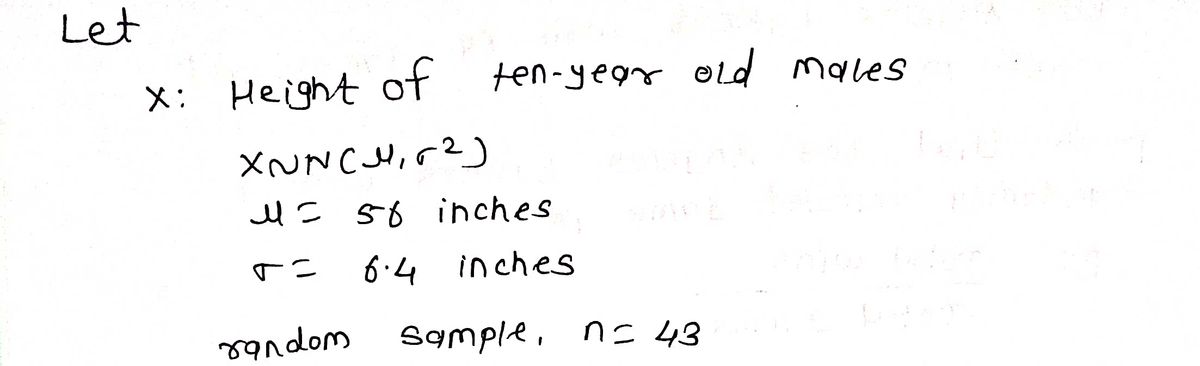 Let
X: Height of ten-year old males
X∼N(μ, σ²)
μ = 56 inches
σ = 6.4 inches
random sample, n = 43